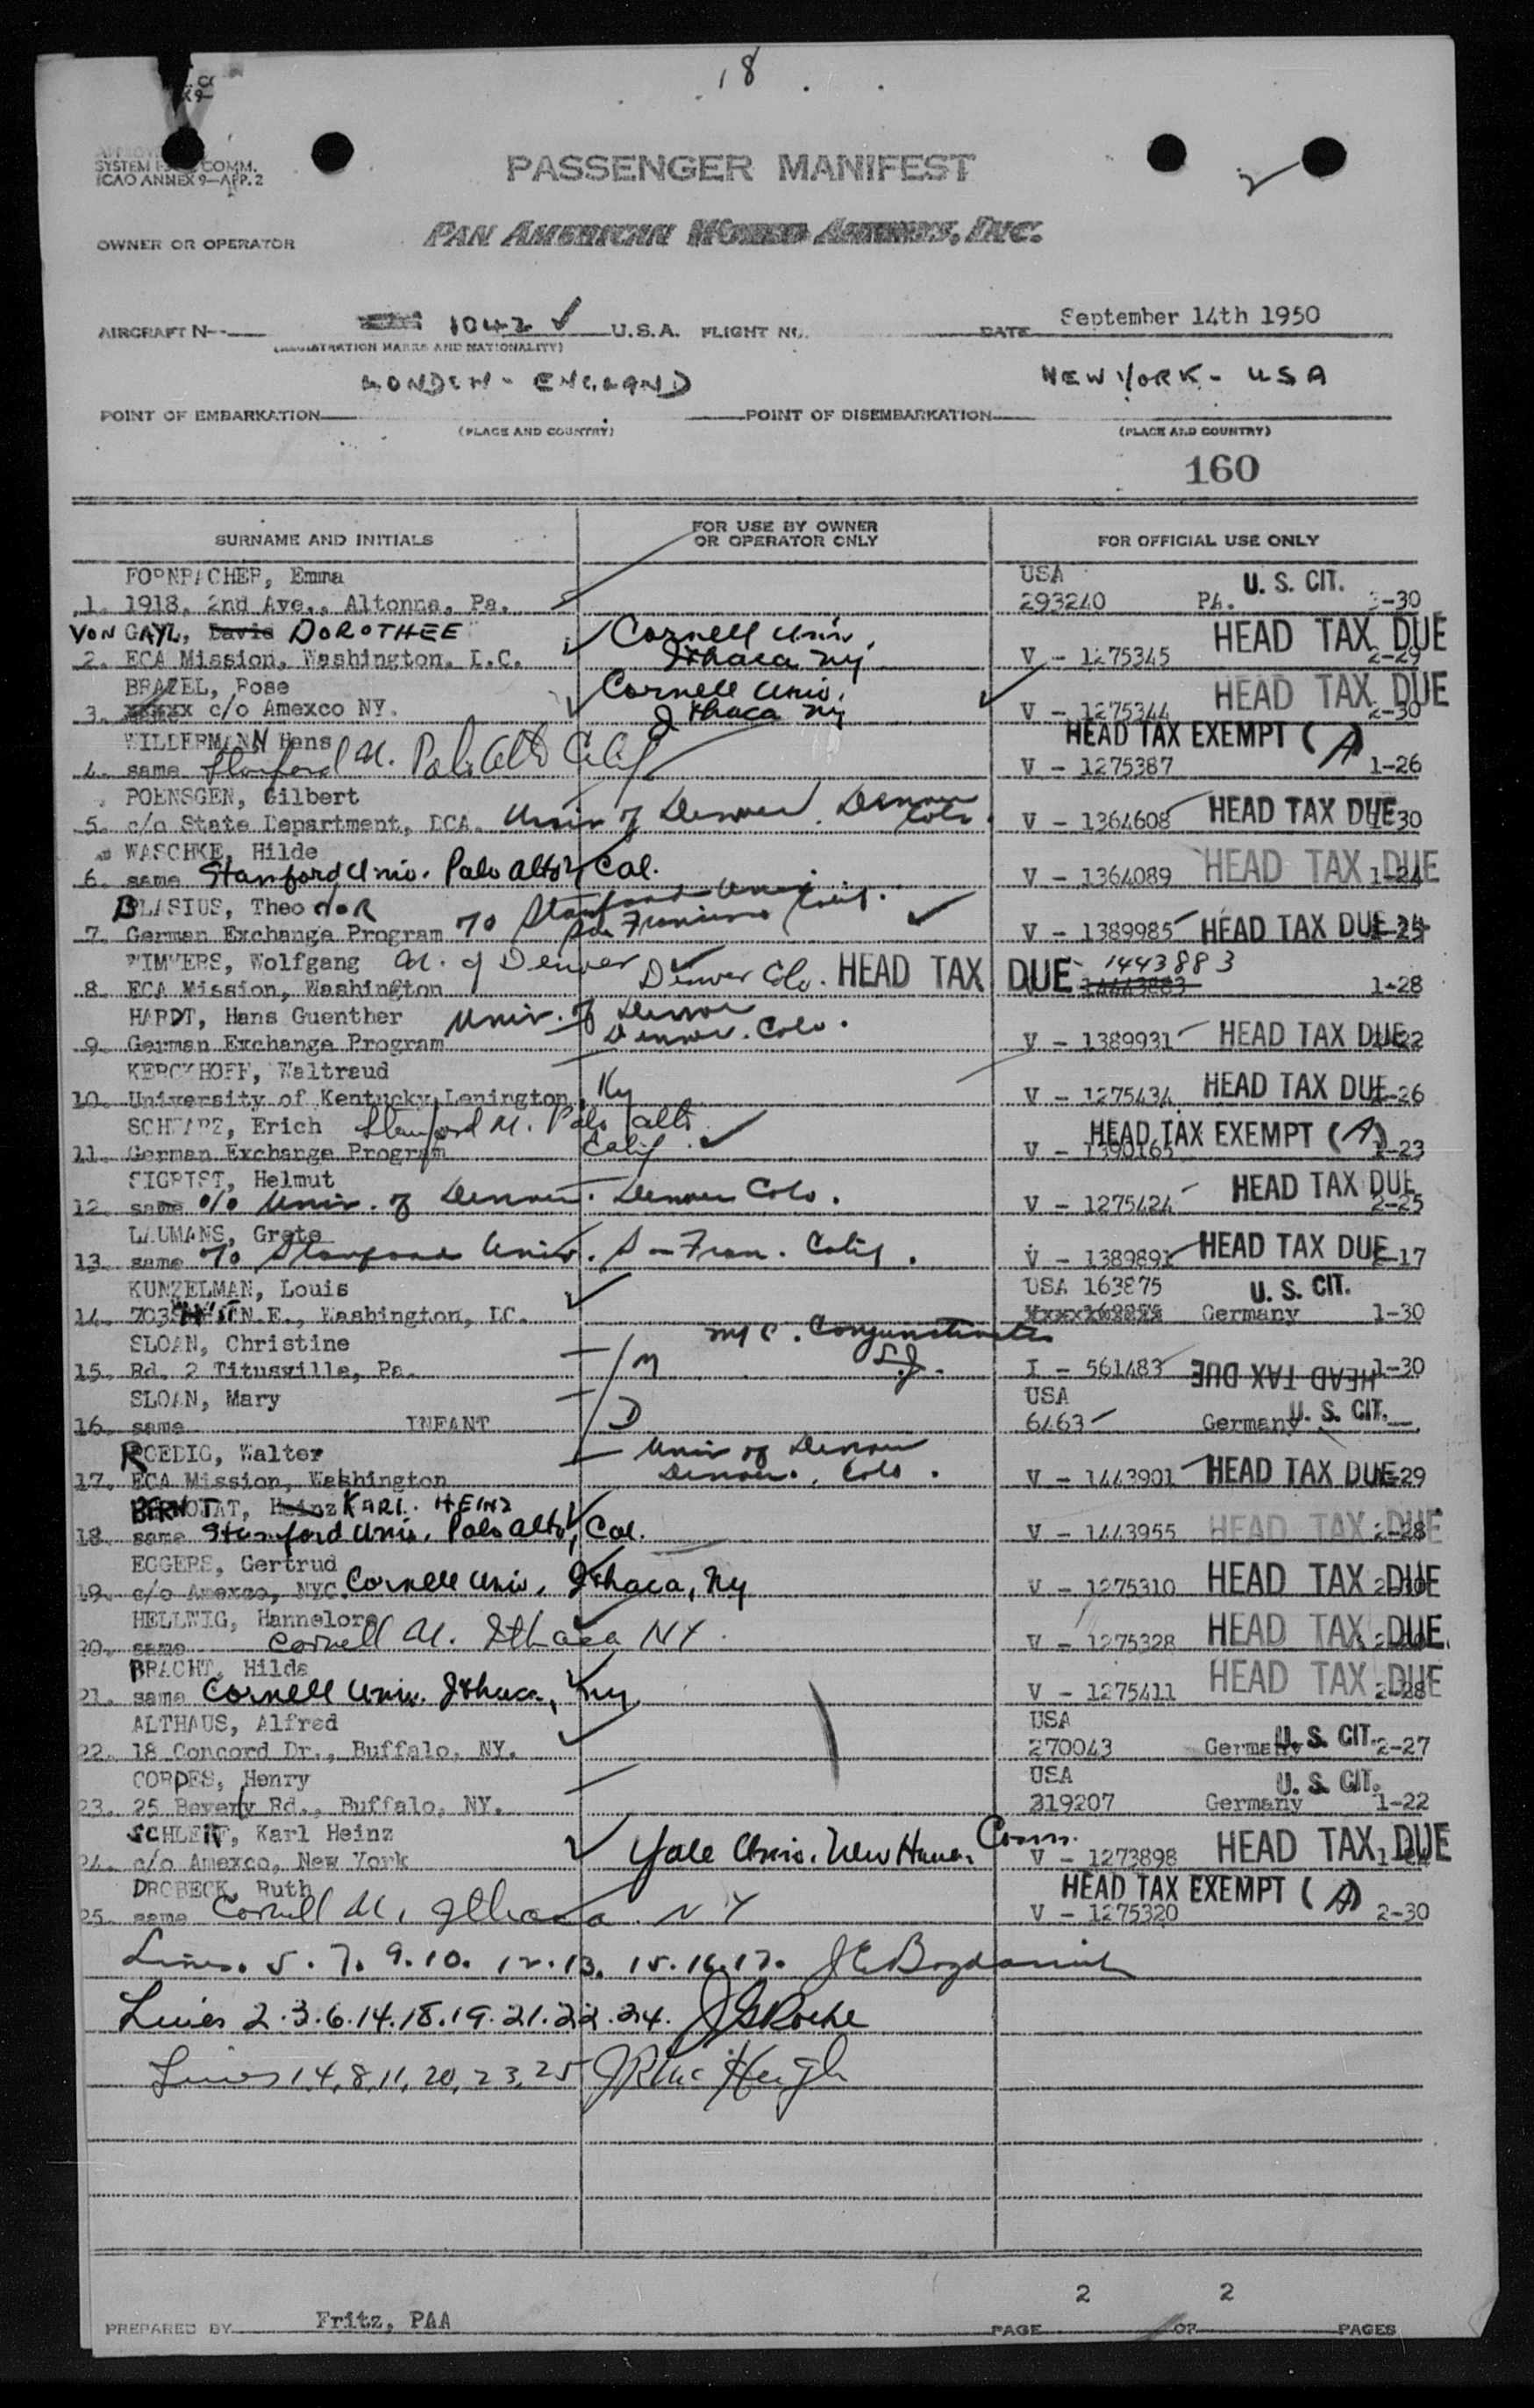 18
APPROVED
SYSTEM COMM.
ICAO ANNEX 9—APP. 2
PASSENGER MANIFEST
2
OWNER OR OPERATOR
PAN AMERICAN WORLD AIRWAYS, INC.
AIRCRAFT N-- 1042 U.S.A. FLIGHT No. DATE September 14th 1950
(REGISTRATION MARKS AND NATIONALITY)
LONDON - ENGLAND NEW YORK - USA
POINT OF EMBARKATION POINT OF DISEMBARKATION
(PLACE AND COUNTRY) (PLACE AND COUNTRY)
160
SURNAME AND INITIALS FOR USE BY OWNER OR OPERATOR ONLY FOR OFFICIAL USE ONLY
FORNBACHER, Emma USA U. S. CIT.
1. 1918, 2nd Ave., Altonna, Pa. 293240 PA. 3-30
VON GAYL, Davis DOROTHEE Cornell Univ. HEAD TAX DUE
2. ECA Mission, Washington, D.C. Ithaca NY V - 1275345 2-29
BRAZEL, Rose Cornell Univ. HEAD TAX DUE
3. xxxxx c/o Amexco NY. Ithaca NY V - 1275344 2-30
WILDERMANN Hans HEAD TAX EXEMPT (A)
4. same Stanford U. Palo Alto Calif V - 1275387 1-26
POENSGEN, Gilbert
5. c/o State Department, DCA. Univ of Denver. Denver Colo. V - 1364608 HEAD TAX DUE 1-30
WASCHKE, Hilde
6. same Stanford Univ. Palo Alto, Cal. V - 1364089 HEAD TAX DUE 1-24
BLASIUS, Theodor c/o Stanford Univ
7. German Exchange Program San Francisco Calif. V - 1389985 HEAD TAX DUE
WIMMERS, Wolfgang U. of Denver Denver Colo. HEAD TAX DUE 1443883
8. ECA Mission, Washington 14443883 1-28
HARDT, Hans Guenther Univ. of Denver
9. German Exchange Program Denver. Colo. V - 1389931 HEAD TAX DUE 22
KERCKHOFF, Waltraud
10. University of Kentucky, Lenington, Ky V - 1275434 HEAD TAX DUE 26
SCHWARZ, Erich Stanford U. Palo Alto HEAD TAX EXEMPT (A)
11. German Exchange Program Calif. V - 1390165 1-23
SIGRIST, Helmut HEAD TAX DUE
12. same c/o Univ. of Denver. Denver Colo. V - 1275424 2-25
LAUMANS, Grete
13. same c/o Stanford Univ. San Fran. Calif. V - 1389891 HEAD TAX DUE 17
KUNZELMAN, Louis USA 163875 U. S. CIT.
14. 7039 "H" St N.E., Washington, DC. Germany 1-30
SLOAN, Christine Conjunctivitis
15. Rd. 2 Titusville, Pa. M I - 561483 HEAD TAX DUE 1-30
SLOAN, Mary USA
16. same INFANT D 6463 Germany U. S. CIT.
ROEDIG, Walter Univ of Denver
17. ECA Mission, Washington Denver, Colo. V - 1443901 HEAD TAX DUE 29
BERNOTAT, Heinz KARL HEINZ
18. same Stanford Univ. Palo Alto, Cal. V - 1443955 HEAD TAX DUE 2-28
EGGERS, Gertrud
19. c/o Amexco, NYC. Cornell Univ. Ithaca, NY V - 1275310 HEAD TAX DUE
HELLWIG, Hannelore
20. same Cornell U. Ithaca NY V - 1275328 HEAD TAX DUE
BRACHT, Hilde HEAD TAX DUE
21. same Cornell Univ. Ithaca, NY V - 1275411 2-28
ALTHAUS, Alfred USA
22. 18 Concord Dr., Buffalo, NY. 270043 Germany U. S. CIT. 2-27
CORDES, Henry USA U. S. CIT.
23. 25 Beverly Rd., Buffalo, NY. 319207 Germany 1-22
SCHLEIF, Karl Heinz Yale Univ. New Haven Conn. HEAD TAX DUE
24. c/o Amexco, New York V - 1273898
DROBECK, Ruth HEAD TAX EXEMPT (A)
25. same Cornell U. Ithaca NY V - 1275320 2-30
Lines. 5. 7. 9. 10. 12. 13. 15. 16. 17.
Lines 2. 3. 6. 14. 18. 19. 21. 22. 24. JG Roche
Lines 1, 4, 8, 11, 20, 23, 25
PREPARED BY Fritz, PAA PAGE 2 OF 2 PAGES